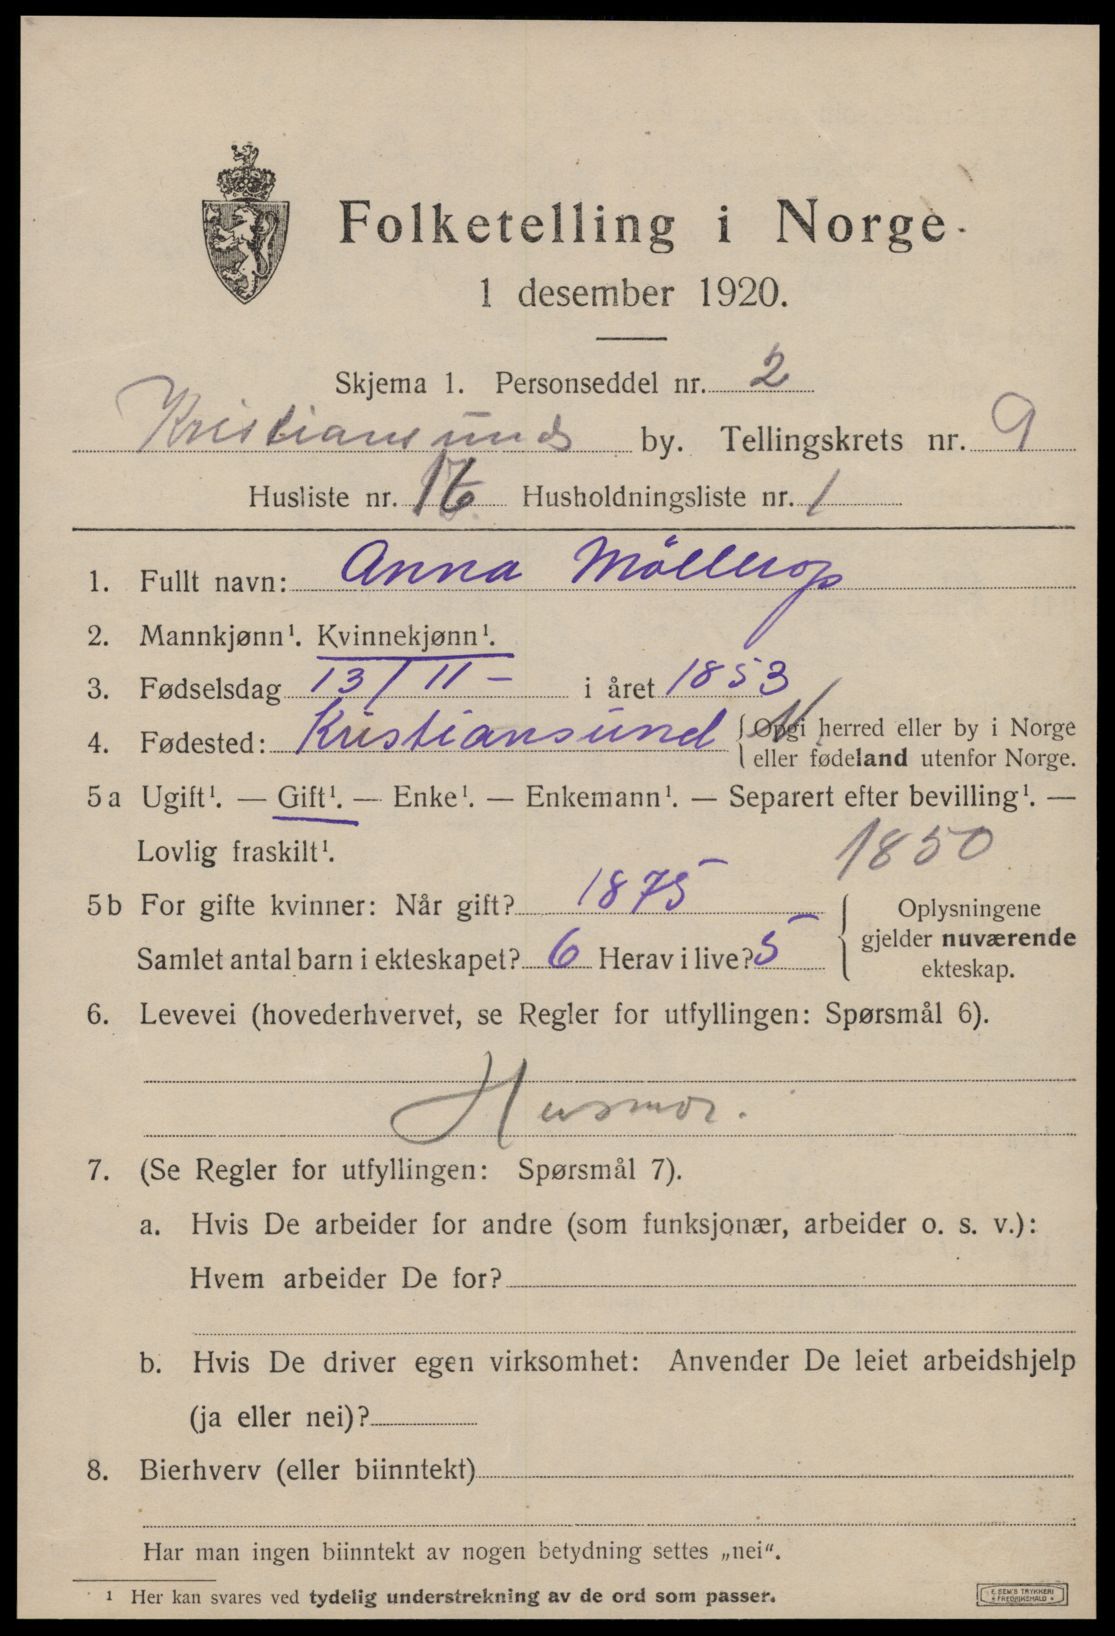 Folketelling i Norge
1 desember 1920.
Skjema 1. Personseddel nr. 2
Kristiansunds by. Tellingskrets nr. 9
Husliste nr. 16 Husholdningsliste nr. 1
1. Fullt navn: Anna Möllerop
2. Mannkjønn¹. Kvinnekjønn¹.
3. Fødselsdag 13/11 - i året 1853
4. Fødested: Kristiansund {Opgi herred eller by i Norge
eller fødeland utenfor Norge.
5 a Ugift¹. — Gift¹. — Enke¹. — Enkemann¹. — Separert efter bevilling¹. —
Lovlig fraskilt¹. 1850
5 b For gifte kvinner: Når gift? 1875 Oplysningene
gjelder nuværende
Samlet antal barn i ekteskapet? 6 Herav i live? 5 ekteskap.
6. Levevei (hovederhvervet, se Regler for utfyllingen: Spørsmål 6).
Husmor.
7. (Se Regler for utfyllingen: Spørsmål 7).
a. Hvis De arbeider for andre (som funksjonær, arbeider o. s. v.):
Hvem arbeider De for?
b. Hvis De driver egen virksomhet: Anvender De leiet arbeidshjelp
(ja eller nei)?
8. Bierhverv (eller biinntekt)
Har man ingen biinntekt av nogen betydning settes „nei“.
¹ Her kan svares ved tydelig understrekning av de ord som passer.
E. SEM'S TRYKKERI
FREDRIKSHALD